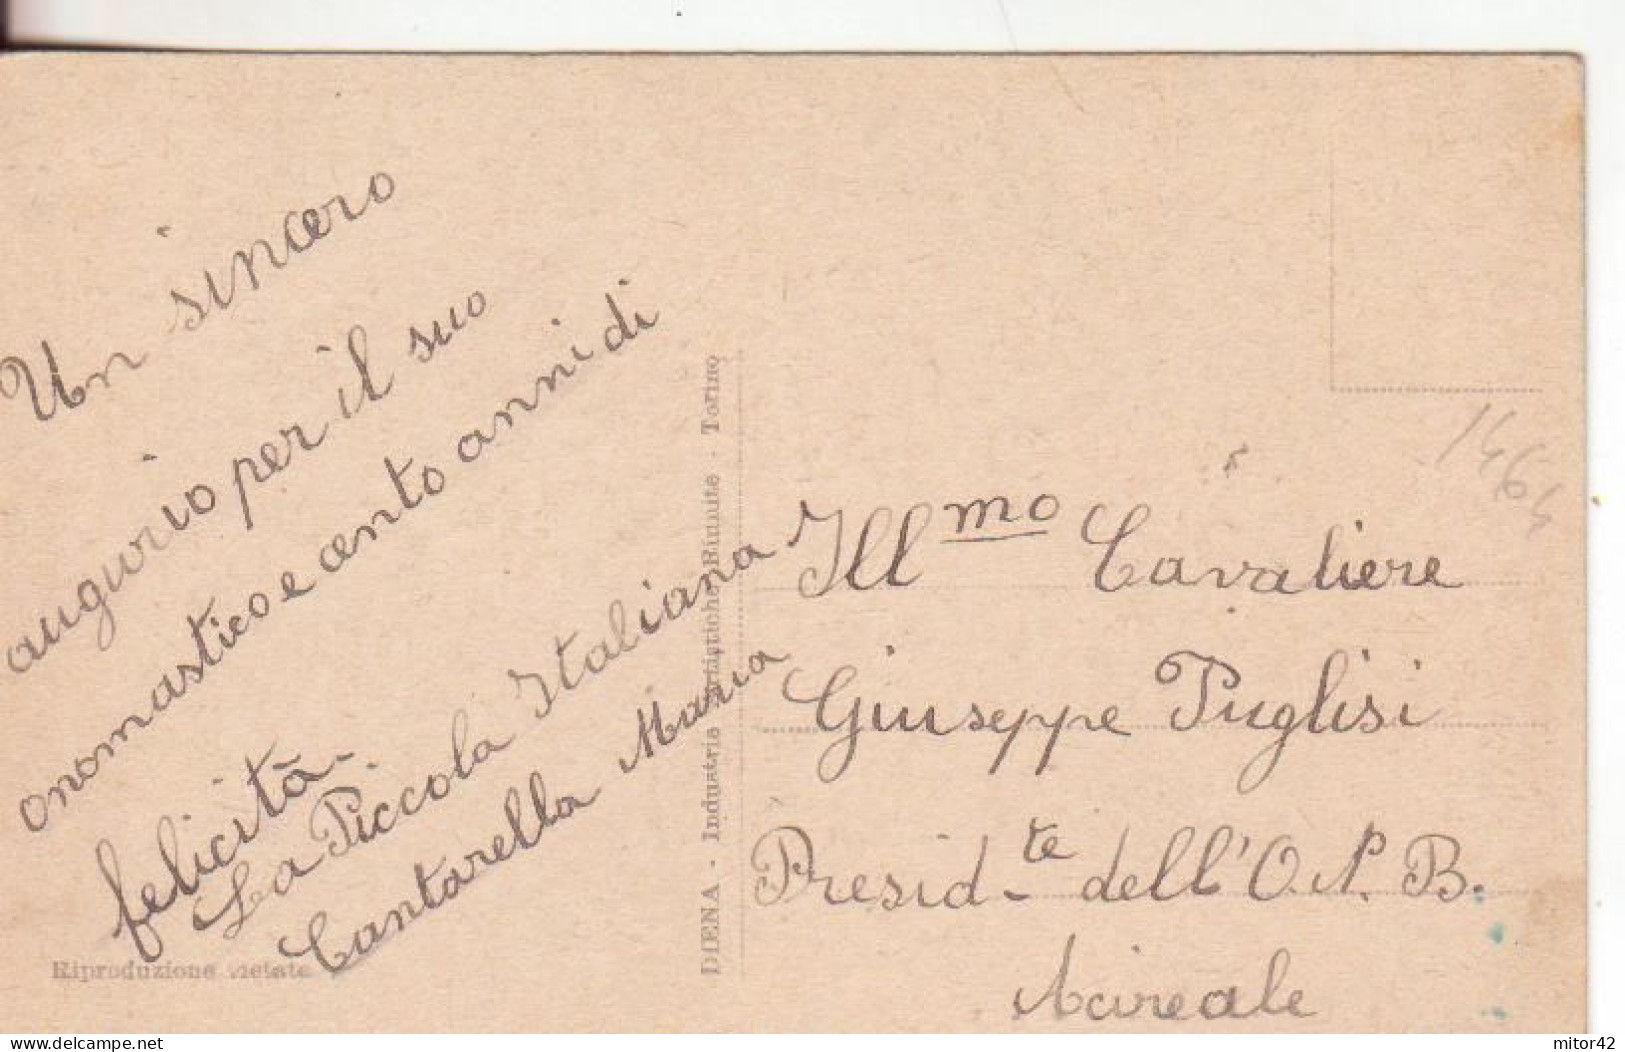 Un sincero
augurio per il suo
onomastico e cento anni di
felicità.
La Piccola Italiana
Cantarella Maria
Riproduzione vietata
DIENA - Industrie Artistiche Riunite - Torino
1464
Ill mo Cavaliere
Giuseppe Puglisi
Presid-te dell'O.N.B.
Acireale
delcampe.net
mitor42